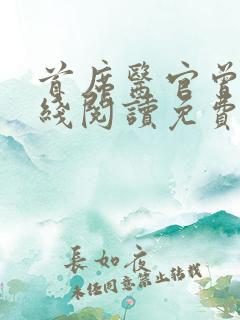 首席醫官曾
綫閱讀免費
長如夜
未經同意禁止轉載